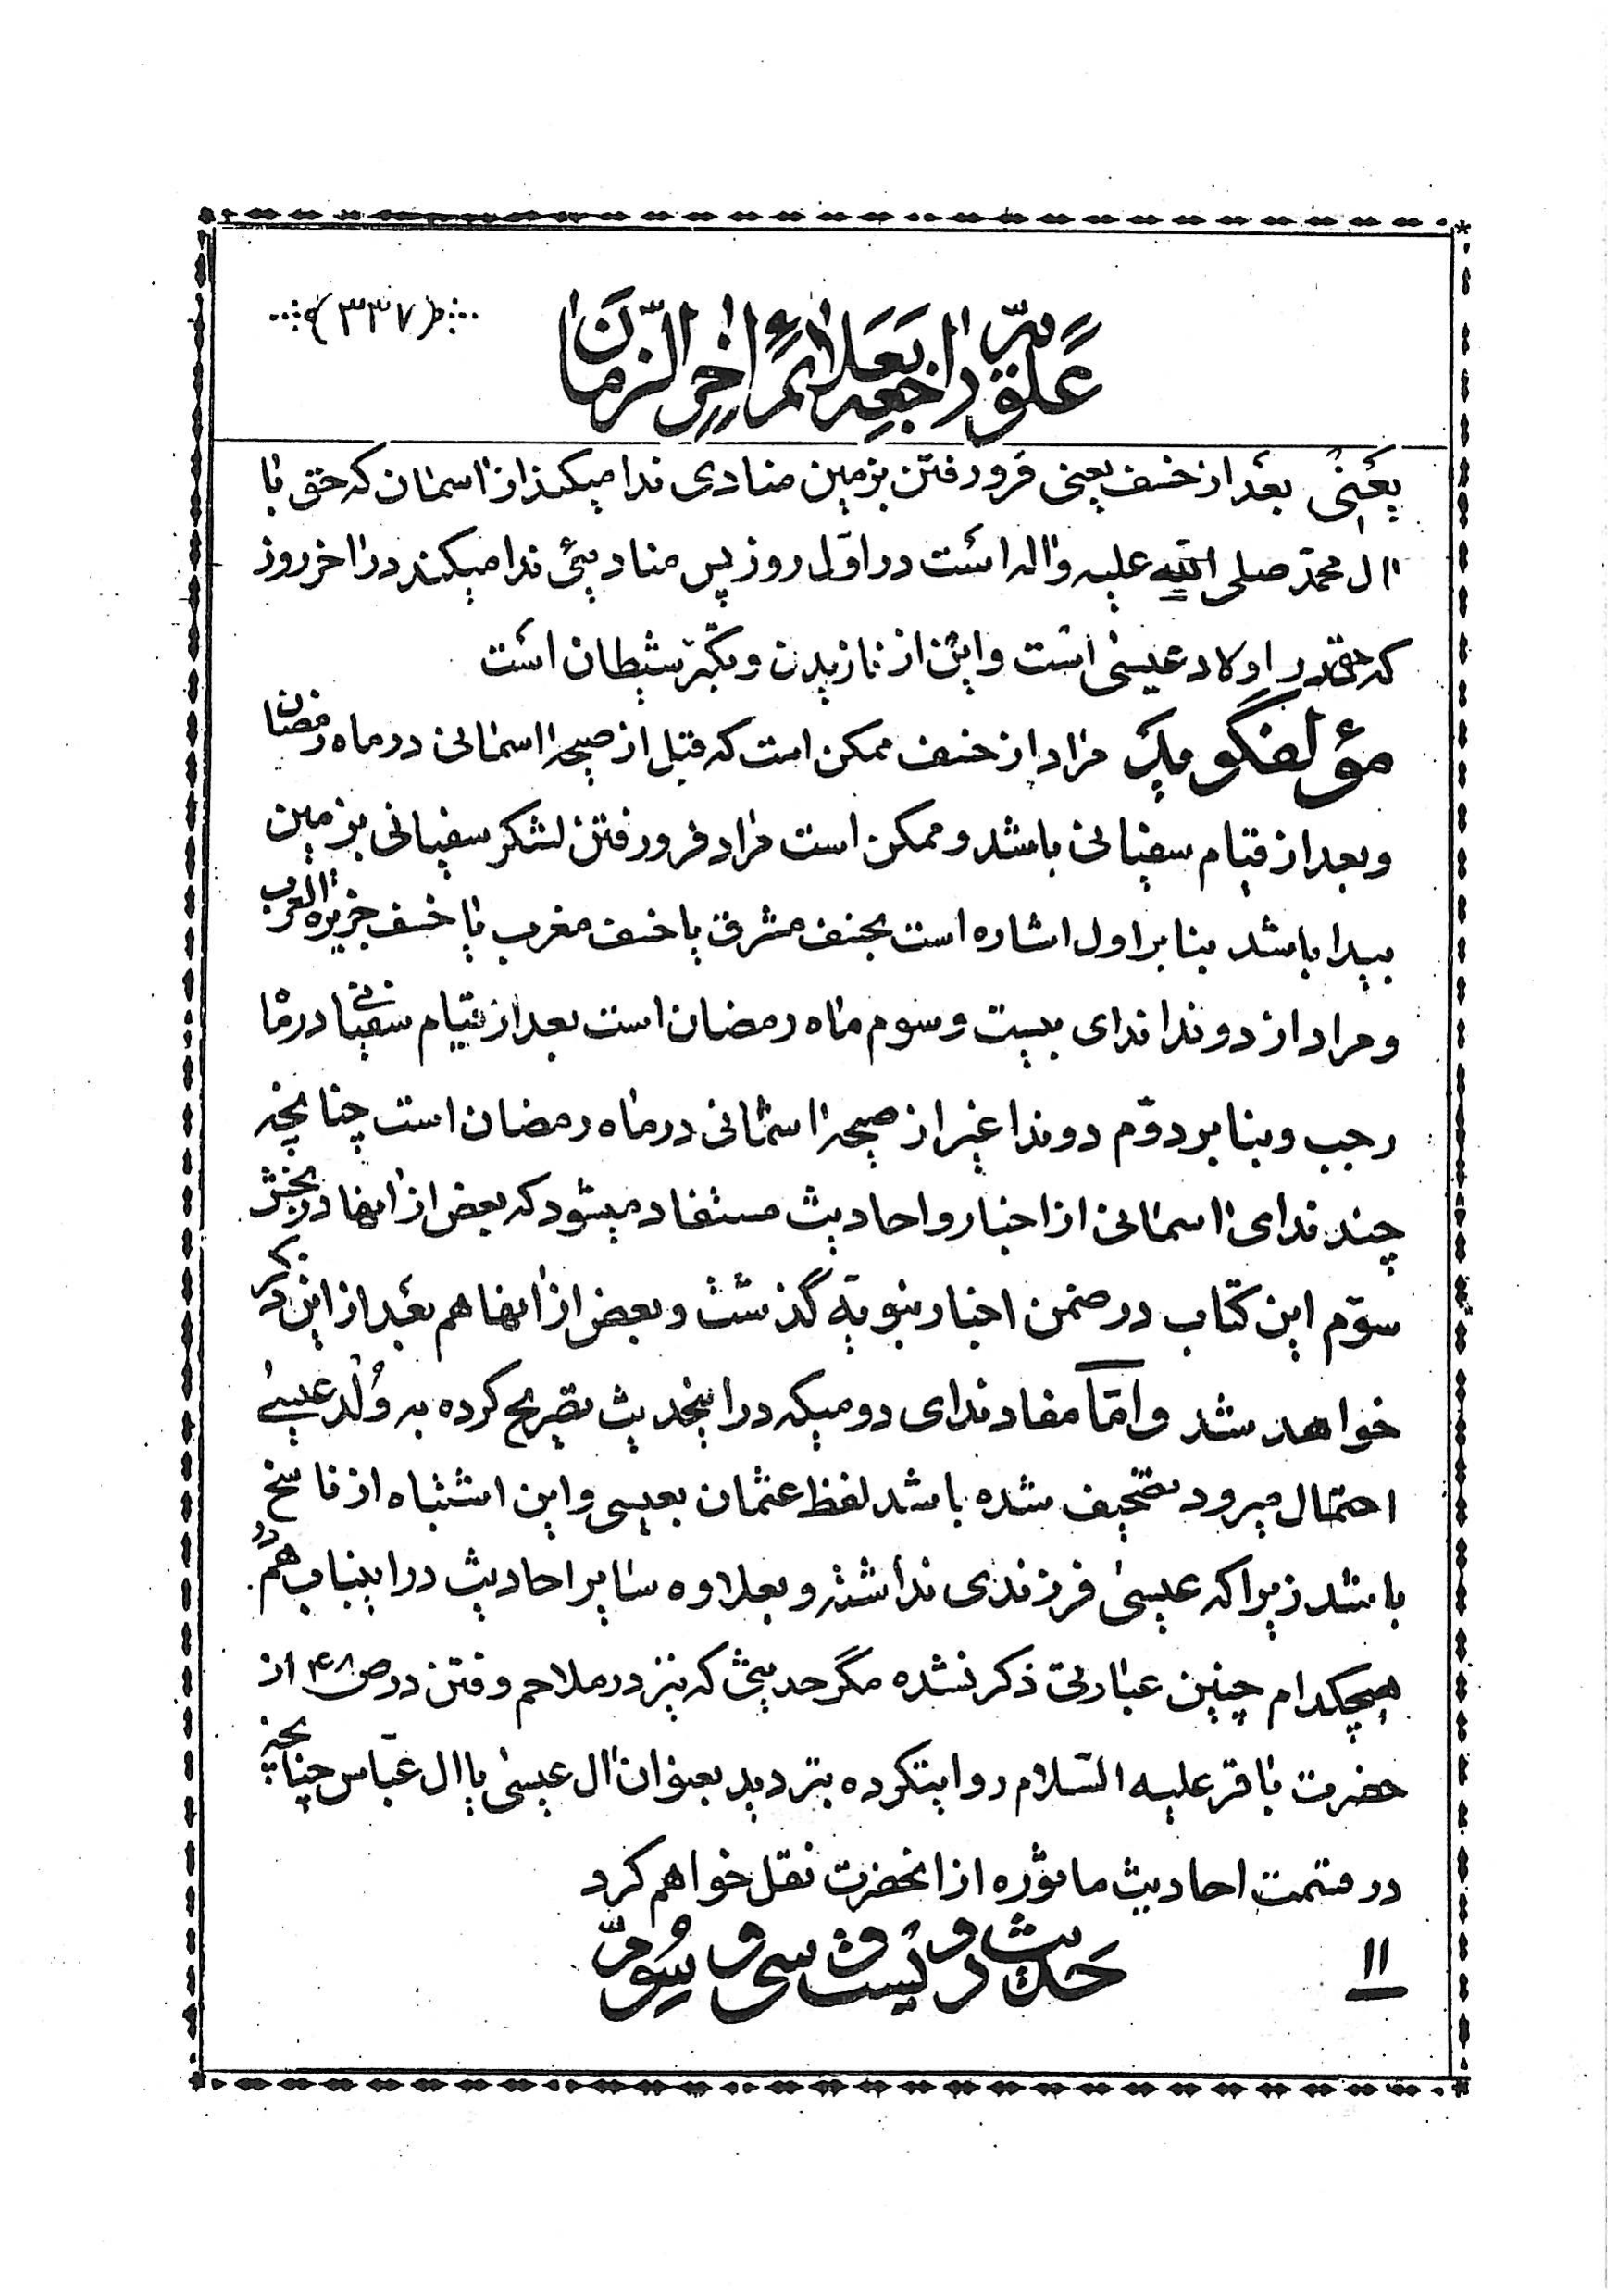 ﴿۳۳۷﴾
علوی راجعه بعلائم اخر الزمان
یعنی بعد از خسف یعنی فرو رفتن بزمین منادی ندا میکند از آسمان که حق با
آل محمد صلی الله علیه و اله است در اول روز پس منادیئی ندا میکند در اخر روز
که حق در اولاد عیسی است و این از نازیدن و تکبر شیطان است
مؤلف گوید مراد از خسف ممکن است که قبل از صیحه آسمانی در ماه رمضان
و بعد از قیام سفیانی باشد و ممکن است مراد فرو رفتن لشکر سفیانی بزمین
بیدا باشد بنا بر اول اشاره است بخسف مشرق یا خسف مغرب یا خسف جزیرة العرب
و مراد از دو ندا ندای بیست و سوم ماه رمضان است بعد از قیام سفیانی در ماه
رجب و بنا بر دوم دو ندا غیر از صیحه آسمانی در ماه رمضان است چنانچه
چند ندای آسمانی از اخبار و احادیث مستفاد میشود که بعض از آنها در بخش
سوم این کتاب در ضمن اخبار نبویه گذشت و بعض از آنها هم بعد از این ذکر
خواهد شد و اما مفاد ندای دومیکه در اینحدیث تصریح کرده به ولد عیسی
احتمال میرود تصحیف شده باشد لفظ عثمان بعیسی و این اشتباه از ناسخ
باشد زیرا که عیسی فرزندی نداشته و بعلاوه سایر احادیث در اینباب هم در
هیچکدام چنین عبارتی ذکر نشده مگر حدیثی که نیز در ملاحم و فتن در ص ۴۸ از
حضرت باقر علیه السلام روایتکرده بتردید بعنوان آل عیسی یا ال عباس چنانچه
در قسمت احادیث ماثوره از انحضرت نقل خواهم کرد
۱۱ حدیث دویست و سی و سوم